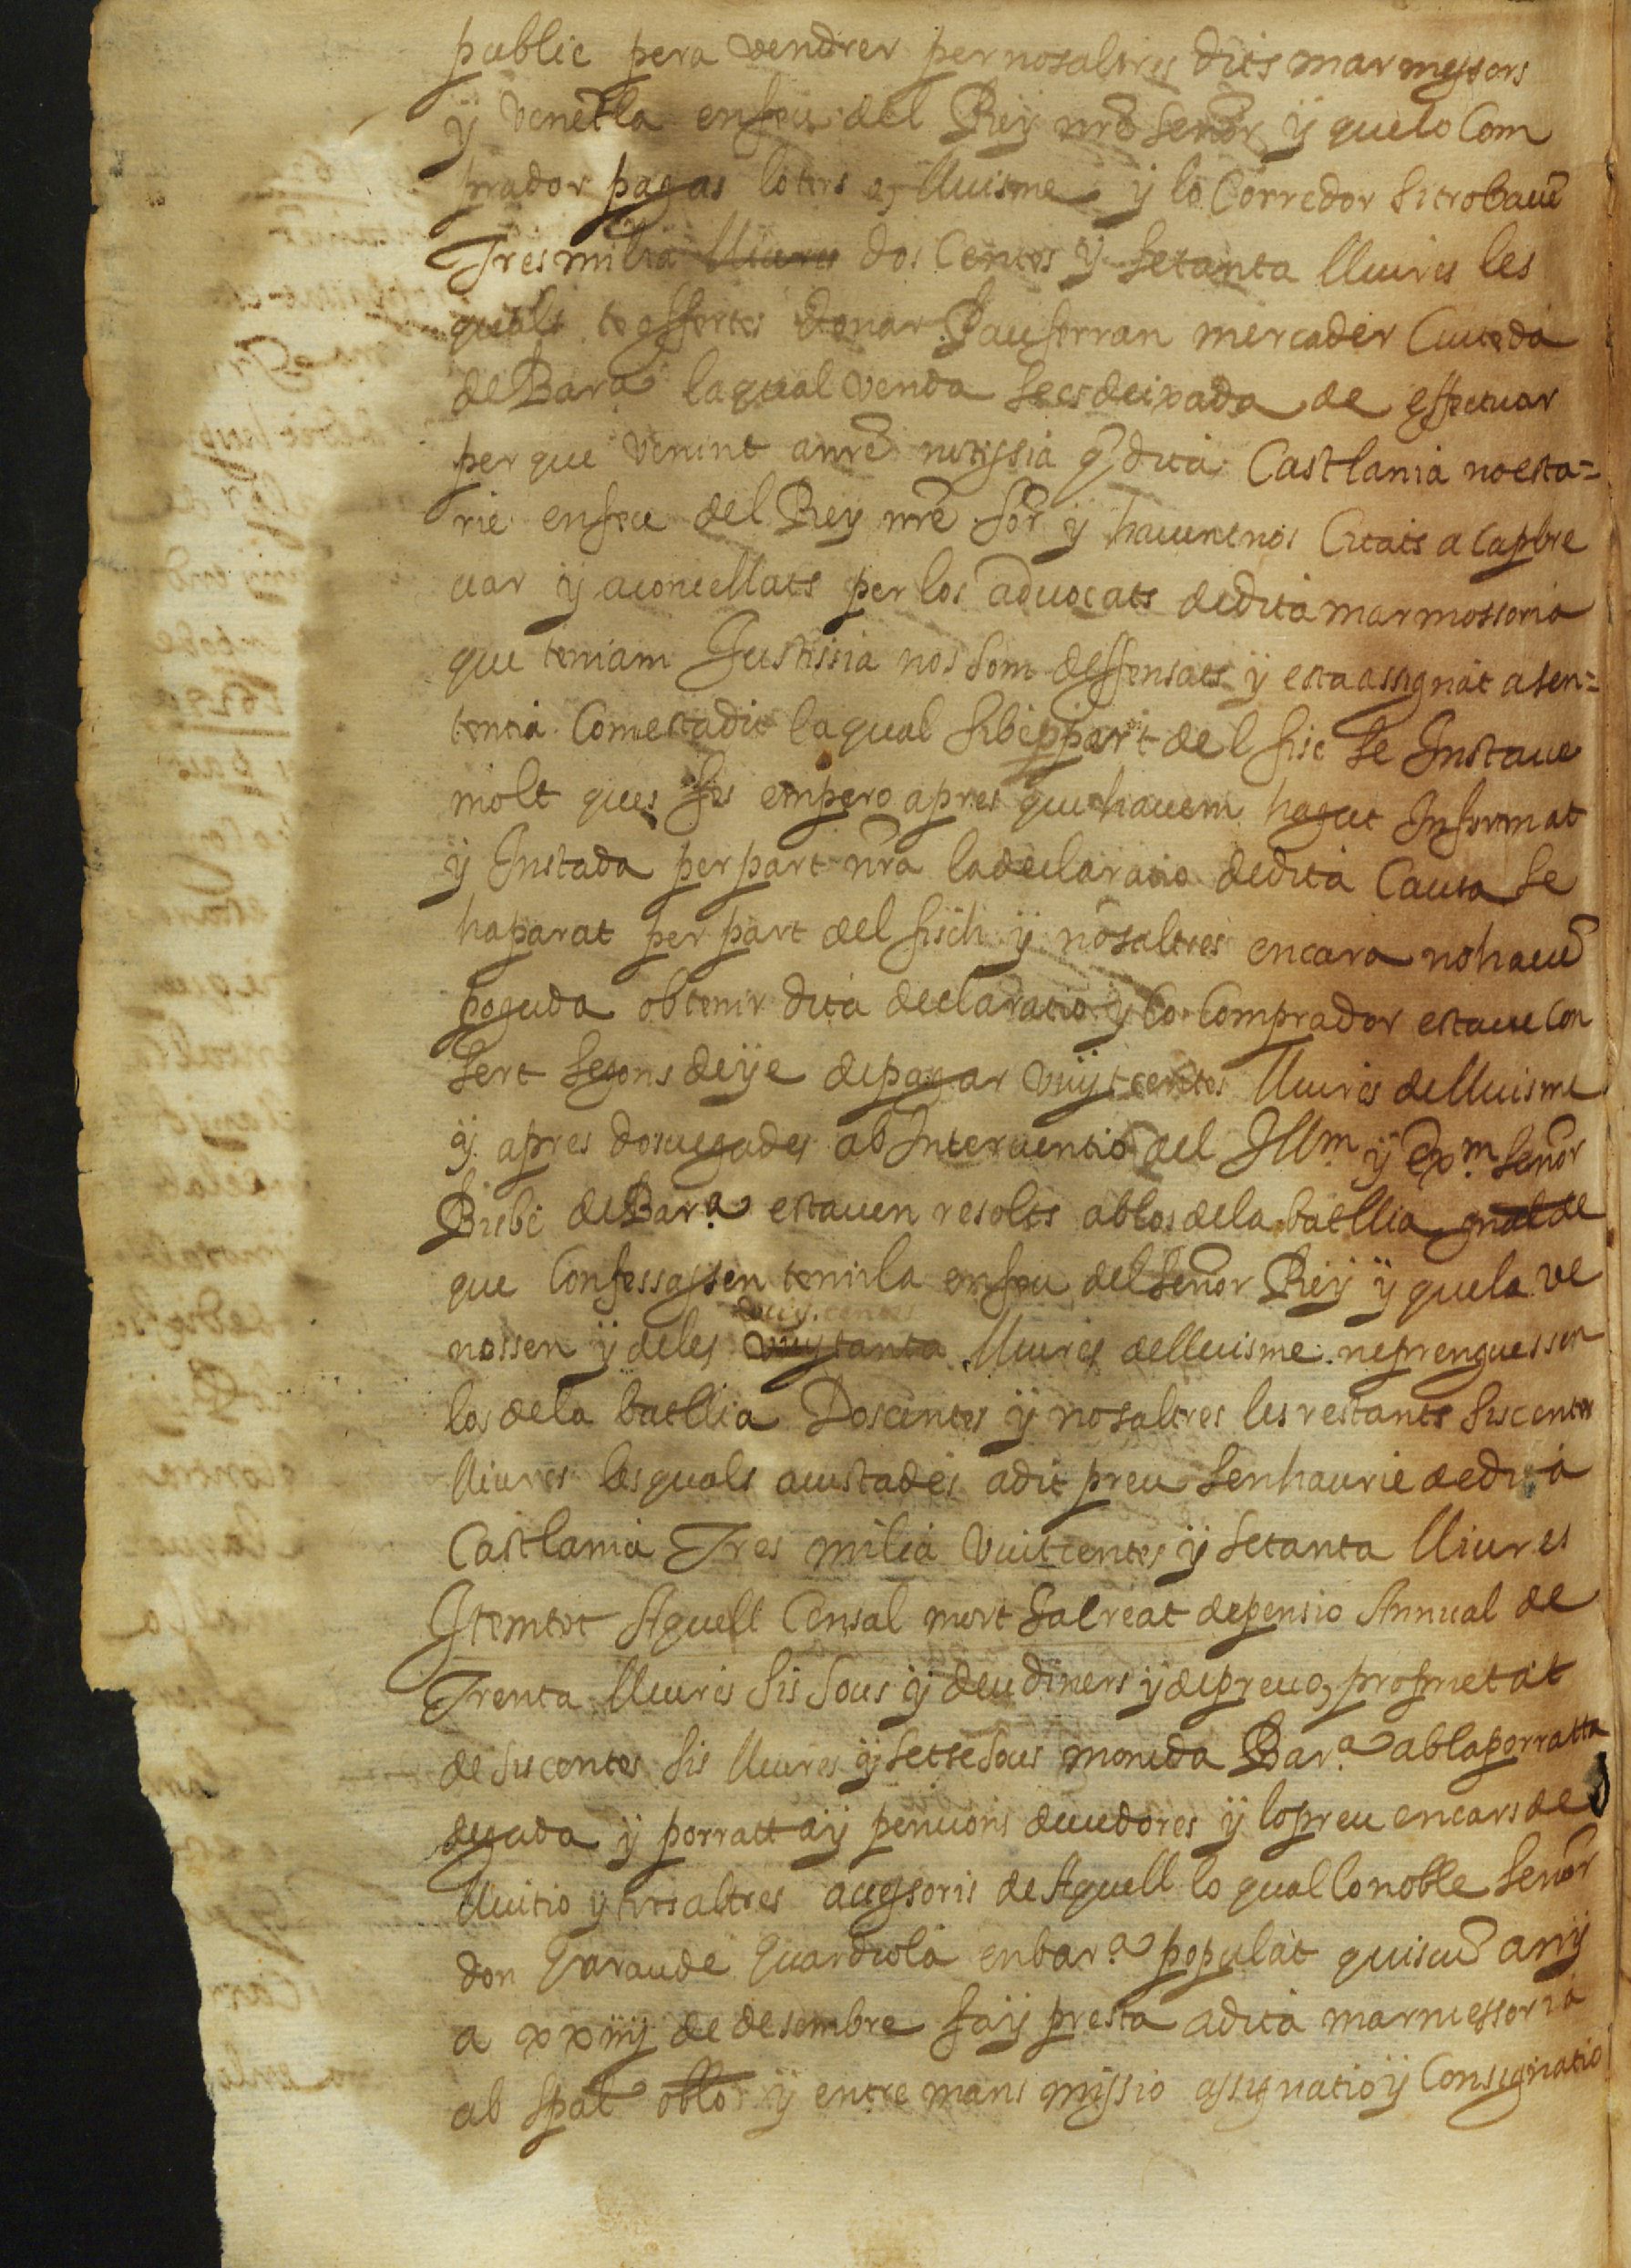 public pera vendrer per nosaltres dits marmessors
y venētla en feu del Rey nr̄e señor y que lo Com
prador pagas lo ters o lluisme y lo Corredor si trobauē
Tres milia lliures dos Centes y setanta lliures les
quals te offertes donar Pau ferran mercader Ciutedà
de Barᵃ la qual venda se es deixada de effectuar
per que venint a nr̄e notissia q̄ dita Castlania no esta=
rie en feu del Rey nr̄e sōr y hauentnos Citats a Capbre
uar y aconcellats per los aduocats de dita marmessoria
que teniam Justissia nos som deffensats y esta assignat a sen=
tencia Com esta dit la qual si be p̱ part del fisc se Instaue
molt ques fes empero apres que hauem hagut Informat
y Instada per part nr̄a la declaratio de dita Causa se
ha parat per part del fisch y nosaltres encara no hauē
poguda obtenir dita declaratio y lo Comprador estaue Con
sert segons deÿe de pagar vuyt centes lliures de lluisme
y apres dos vegades ab Interuentio del Illm. y Exm. señor
Bisbe de Barᵃ estauen resolts ab los de la batllia gnal de
que Confessassen tenirla en feu del señor Rey y que la ve
nossen y de les vuytanta vuyt.centes lliures de lluisme ne prenguessen
los de la batllia Doscentes y nosaltres les restants siscentes
lliures les quals aiustades a dit preu sen haurie de dita
Castlania Tres milia vuitcentes y setanta lliures
Item tot Aquell Censal mort de pensio Annual de
Trenta lliures sis sous y deu diners y de preu o, proprietat
de siscentes sis lliures y setse sous moneda Barᵃ ab la porratta
deguda y porratta y pencions deuedores y lo preu en cars de
lluitio y tots altres acessoris de Aquell lo qual lo noble señor
don Guardiola en barᵃ populat quiscū any
a xxiiij de desembre fay presta a dita marmessoria
ab spāl oblo y entre mans missio assignatio y Consignatio